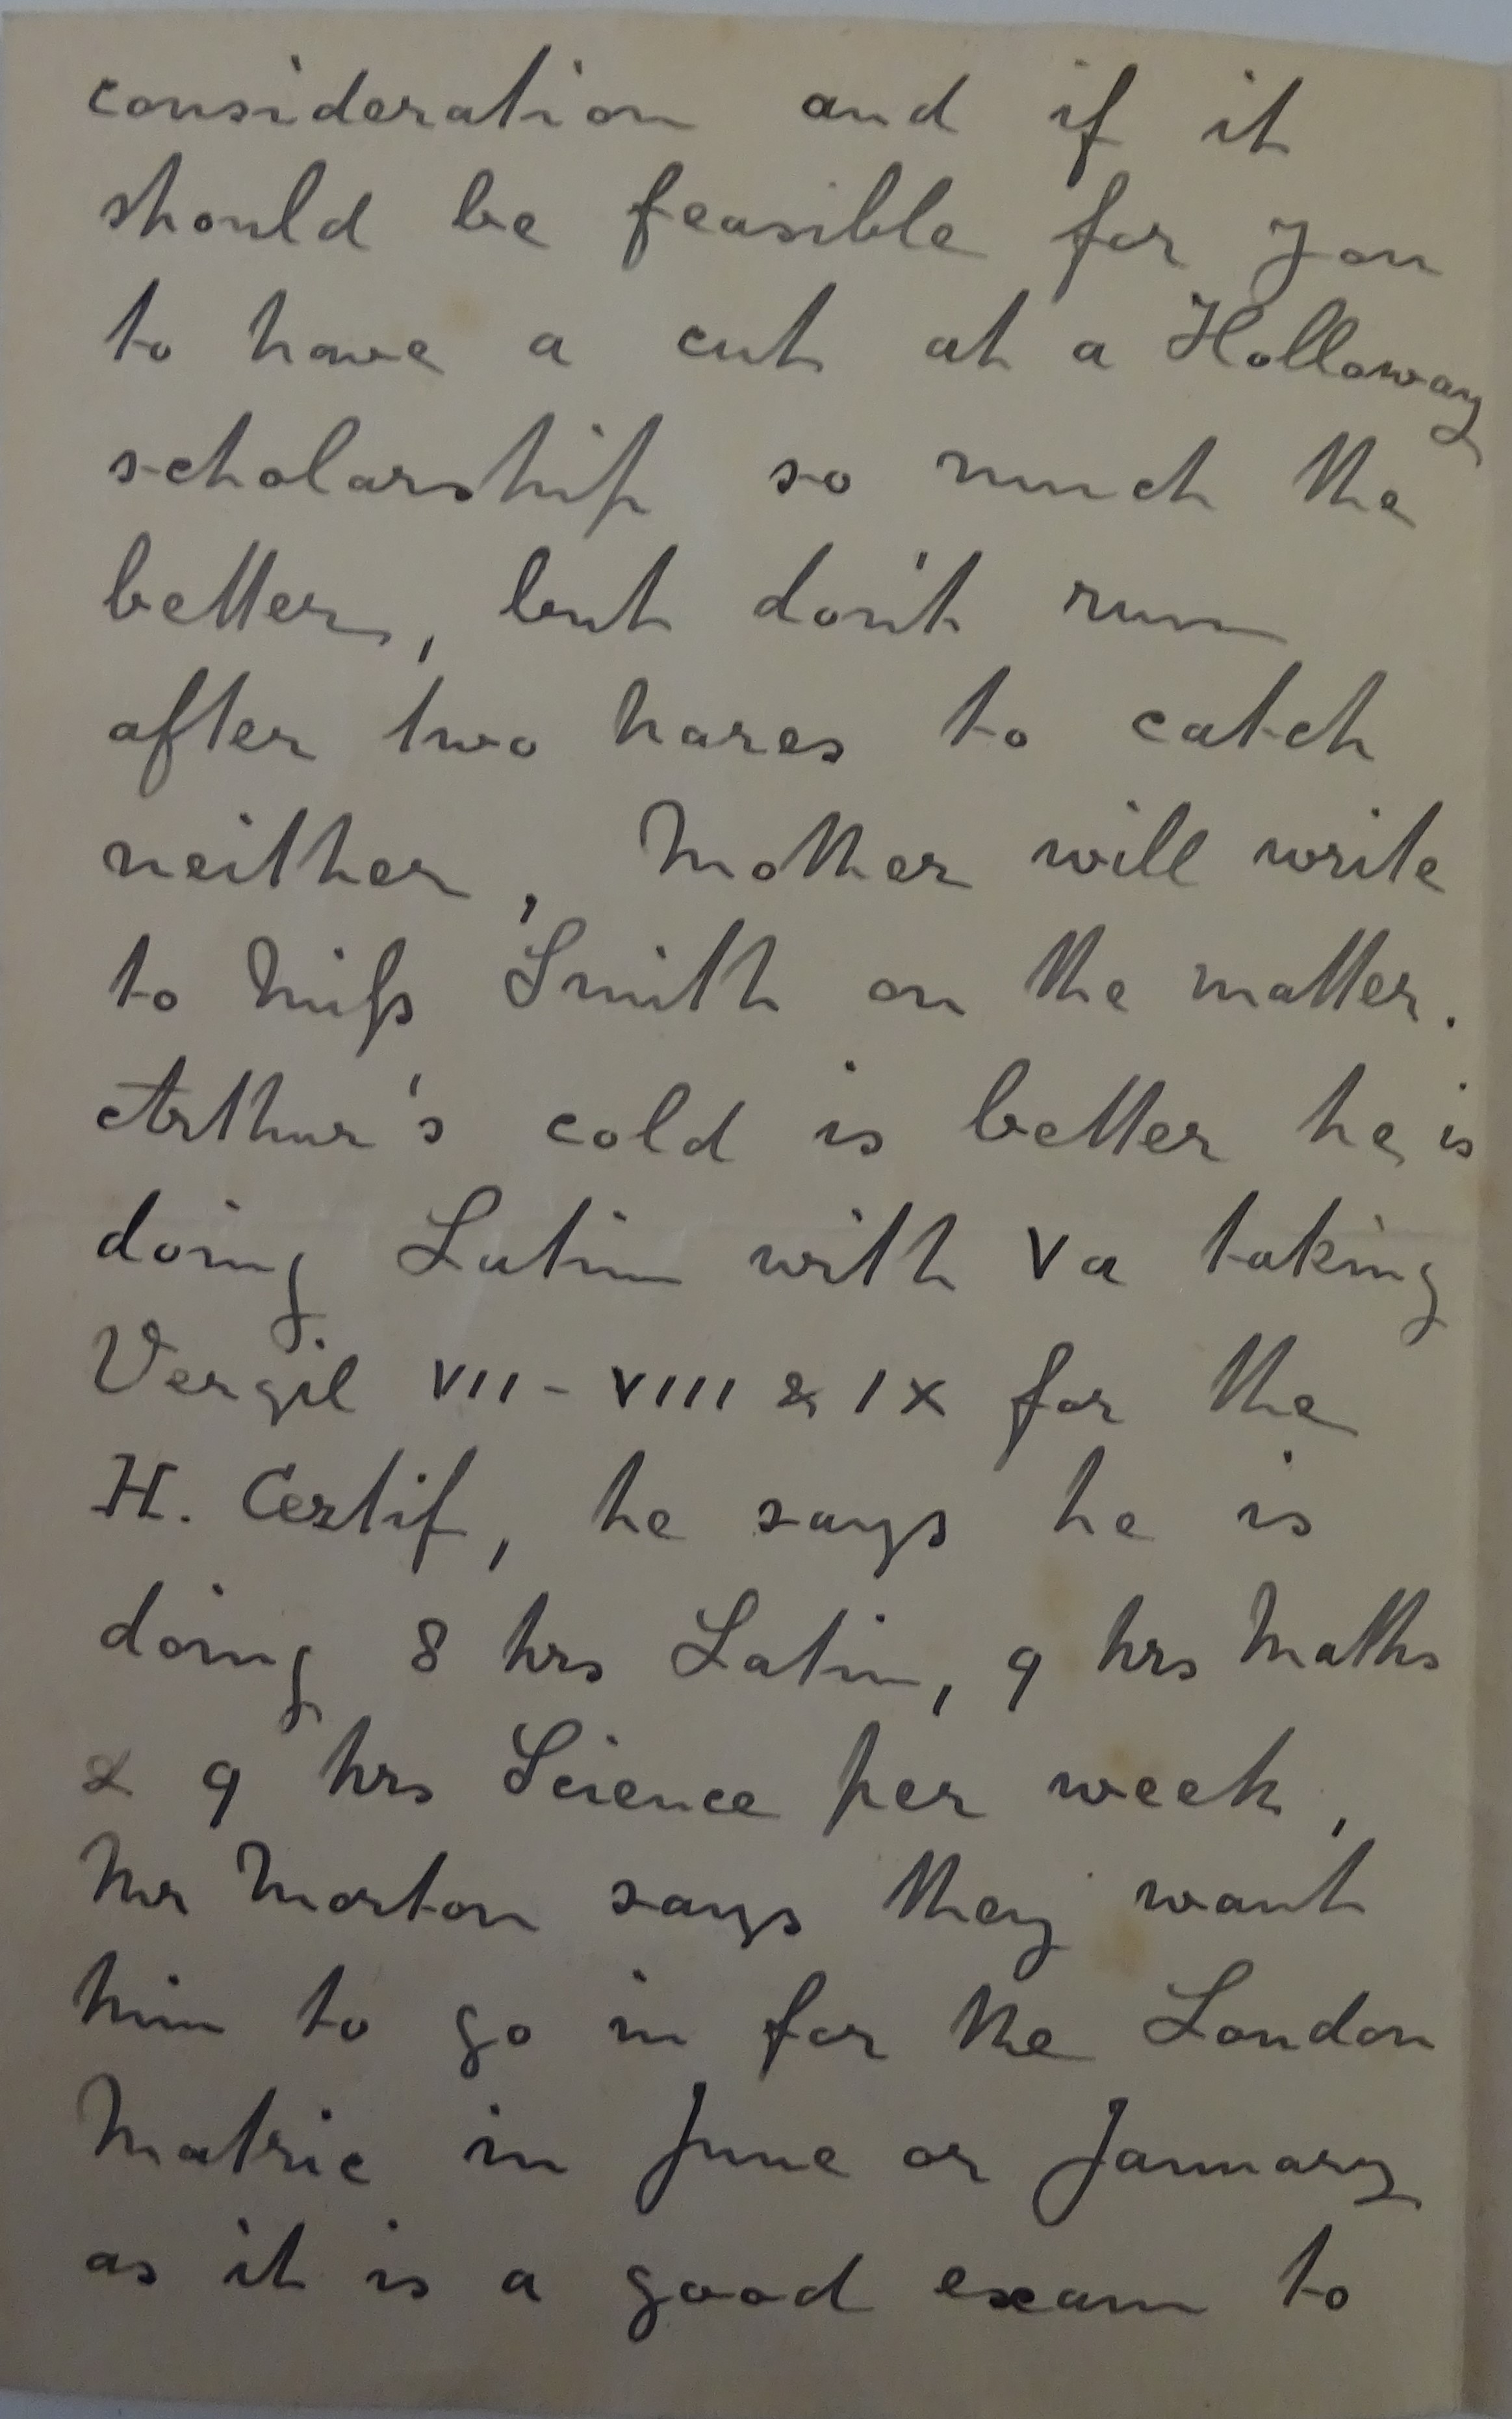 consideration and if it
should be feasible for you
to have a cut at a Holloway
scholarship so much the
better, but don't run
after two hares to catch
neither, Mother will write
to Miſs Smith on the matter.
Arthur's cold is better he is
doing Latin with Va taking
Vergil VII - VIII & IX for the
H. Certif, he says he is
doing 8 hrs Latin, 9 hrs Maths
& 9 hrs Science per week,
Mr Morton says they want
him to go in for the London
Matric in June or January
as it is a good exam to